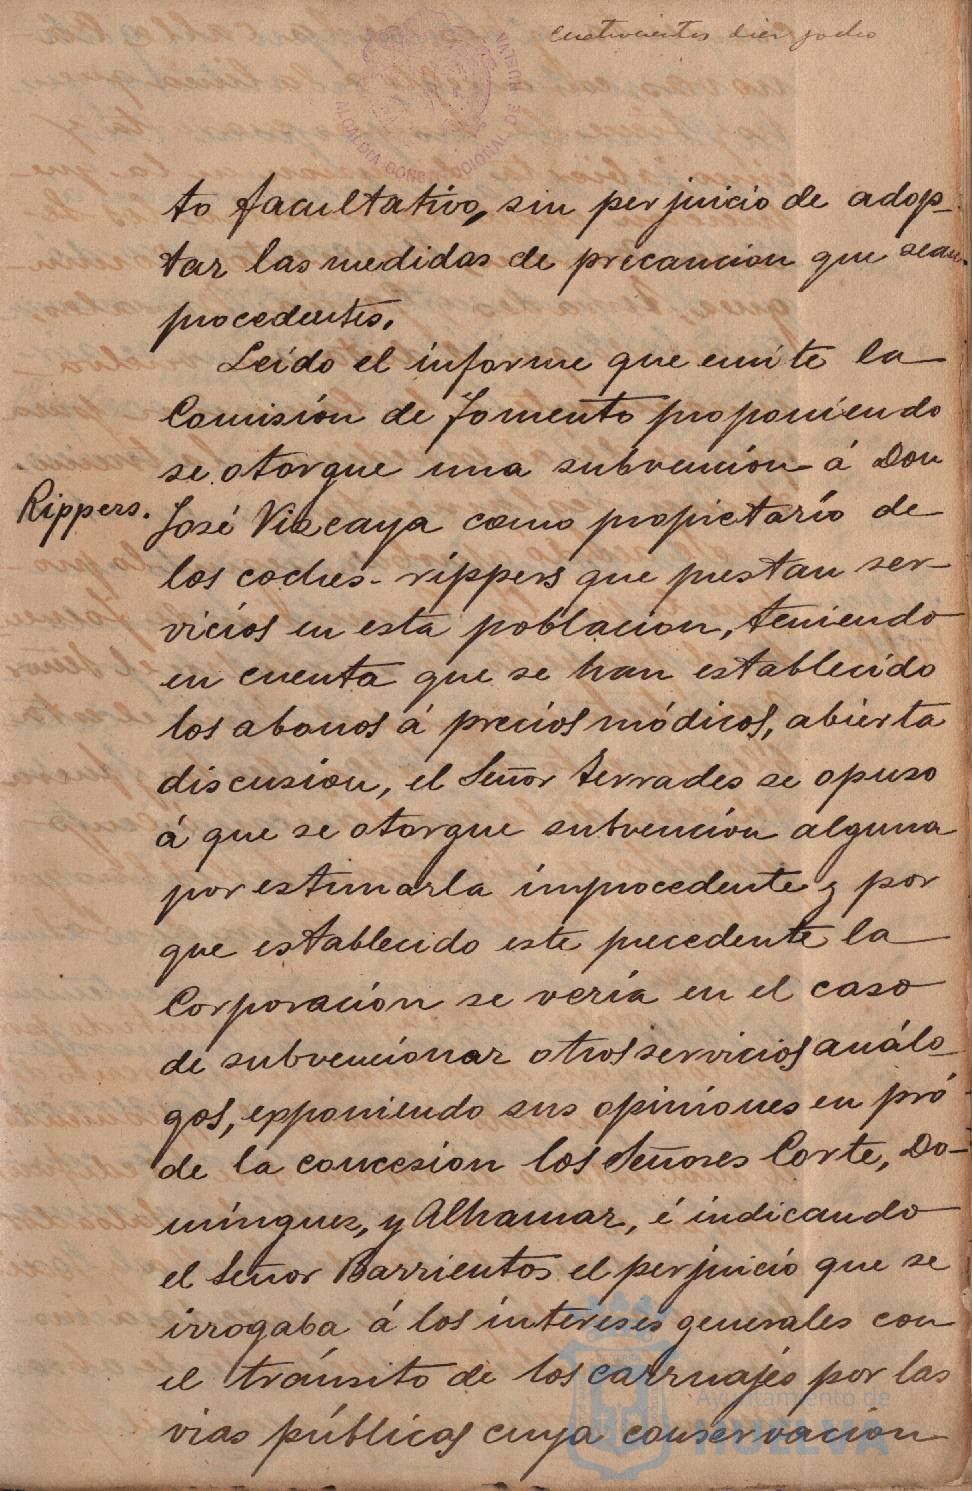 cuatrocientos diez y ocho
ALCALDIA CONSTITUCIONAL DE HUELVA
to facultativo, sin perjuicio de adop-
tar las medidas de precaucion que sean
procedentes.
Leido el informe que emite la
Comisión de Fomento proponiendo
se otorgue una subvencion á Don
Rippers.
José Viscaya como propietario de
los coches-rippers que prestan ser-
vicios en esta poblacion, teniendo
en cuenta que se han establecido
los abonos á precios módicos, abierta
discusion, el Señor Terrades se opuso
á que se otorgue subvencion alguna
por estimarla improcedente y por
que establecido este precedente la
Corporación se vería en el caso
de subvencionar otros servicios análo-
gos, exponiendo sus opiniones en pró
de la concesion los Señores Corte, Do-
minguez, y Alhamar, é indicando
el Señor Barrientos el perjuicio que se
irrogaba á los intereses generales con
el tránsito de los carruajes por las
vias públicas cuya conservacion
Ayuntamiento de
HUELVA